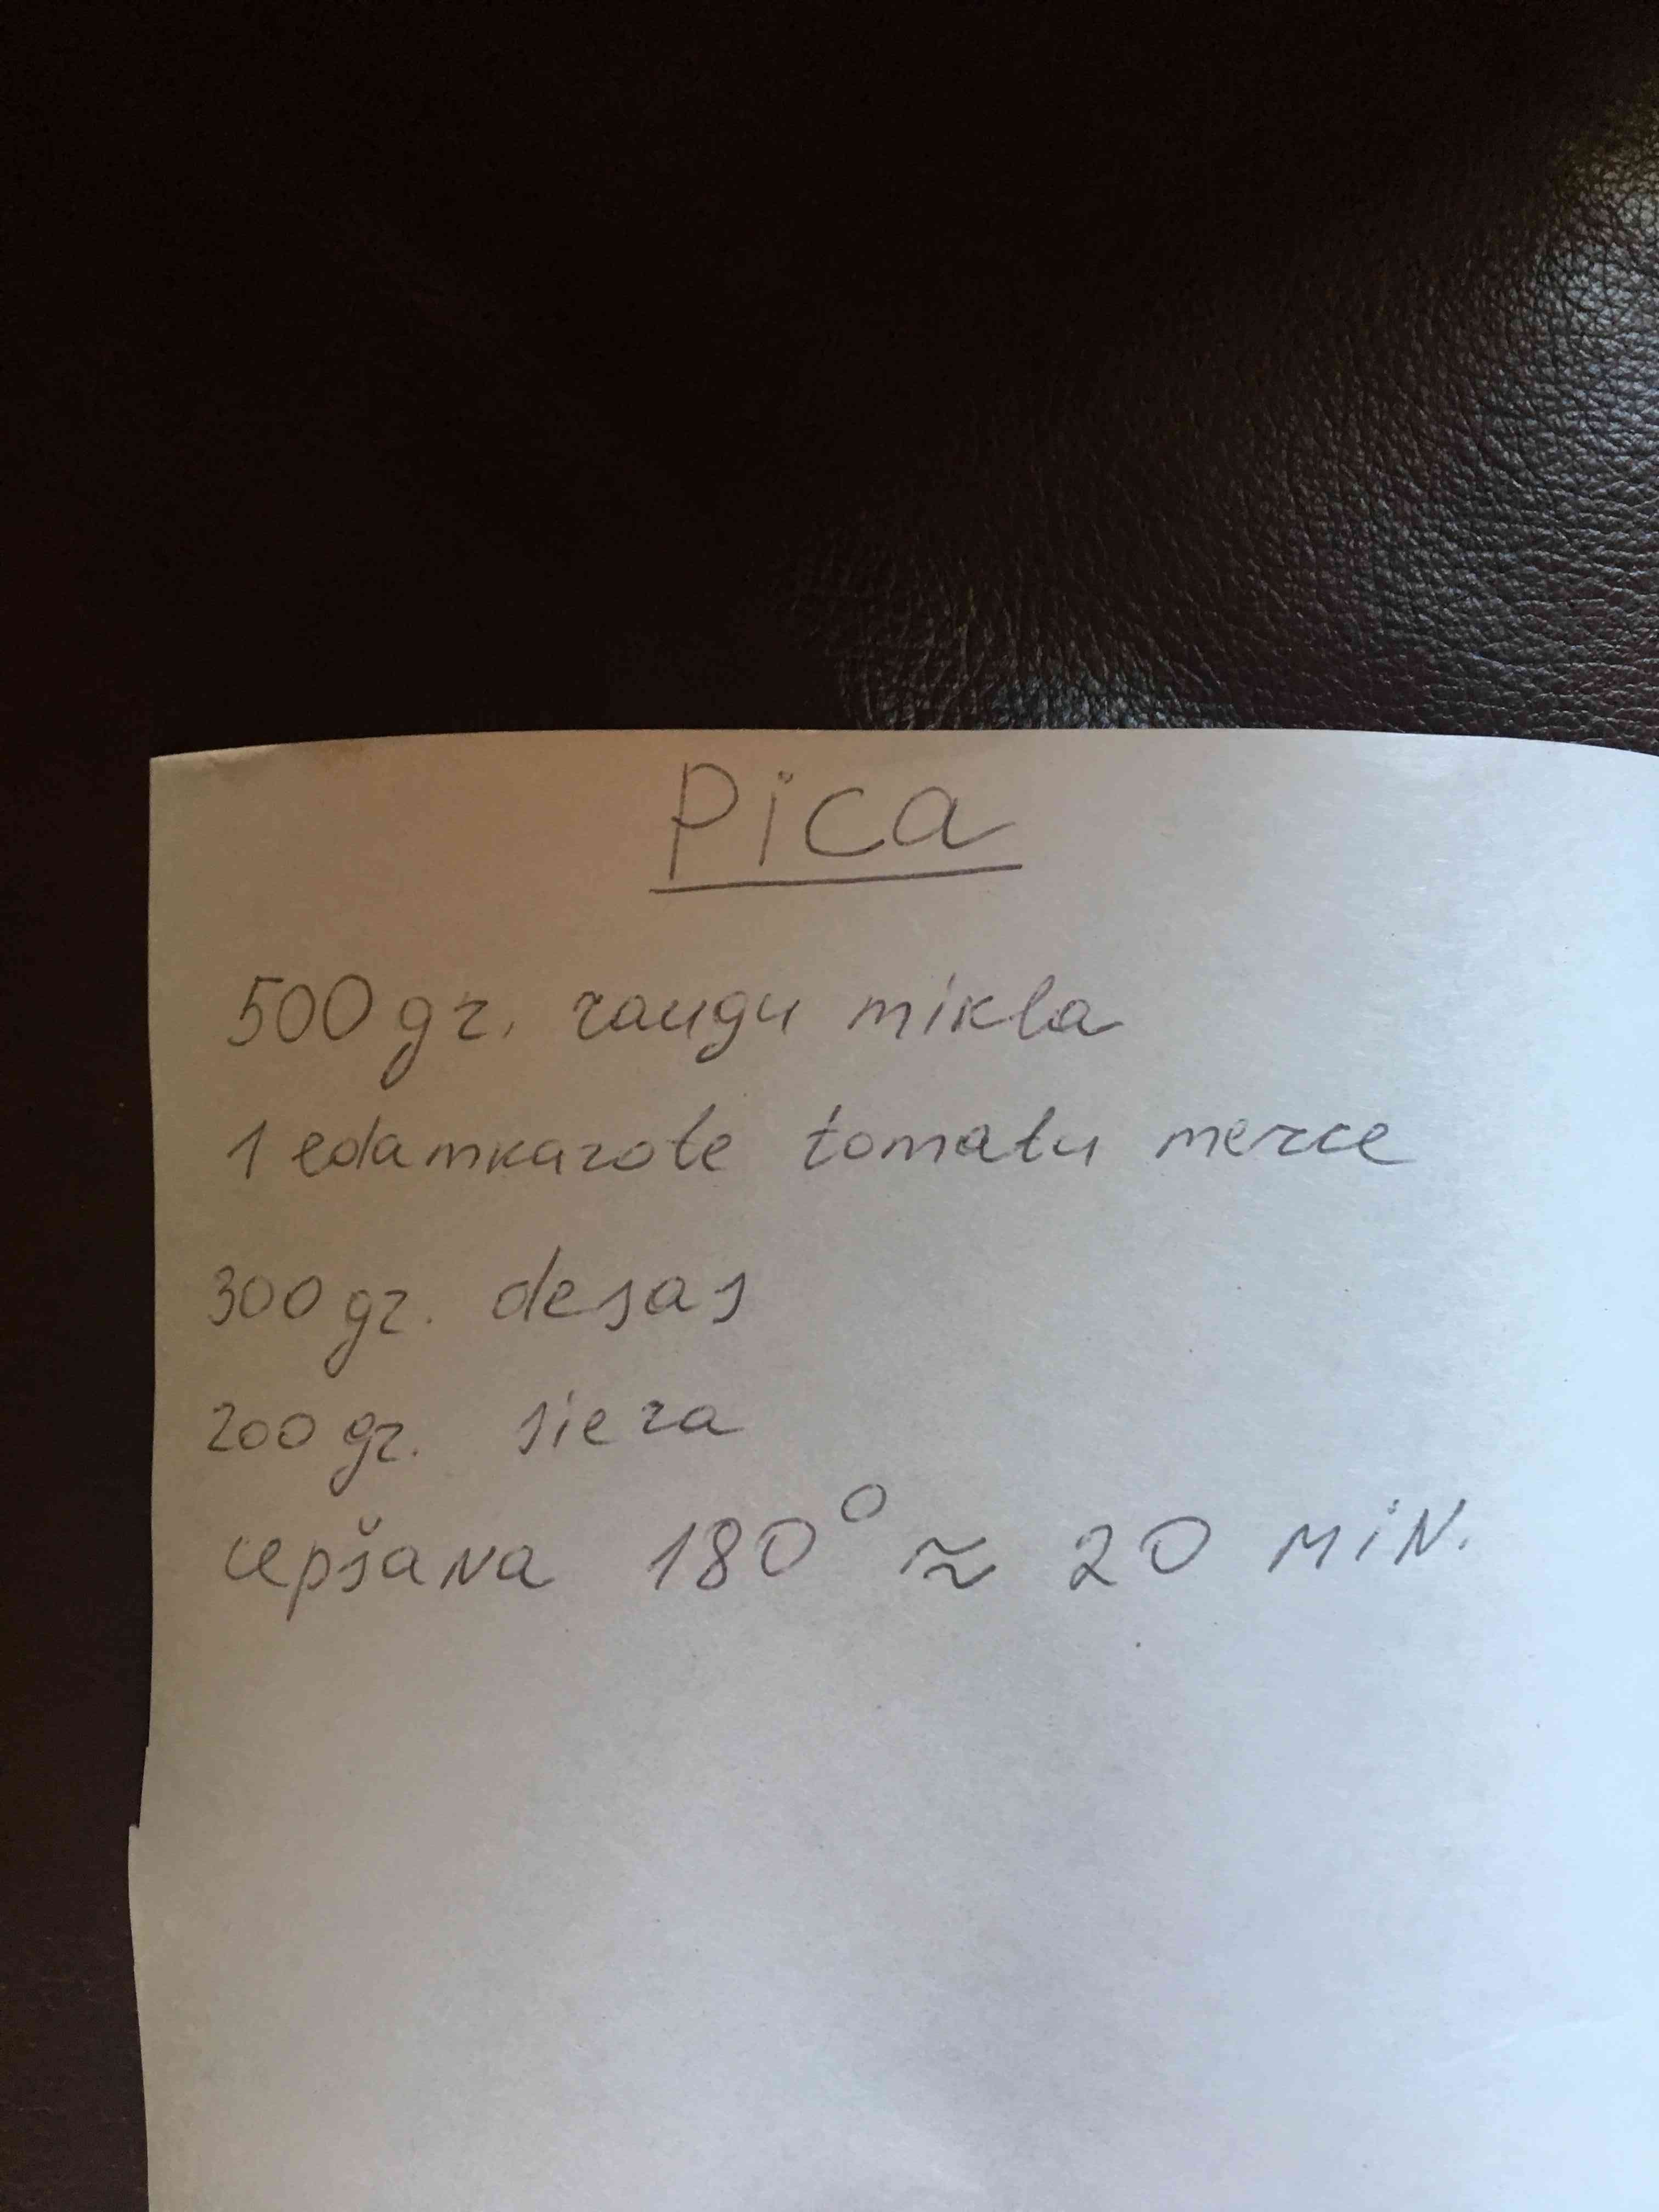 Pica
500 gr. raugu mikla
1 edamkarote tomatu merce
300 gr. desas
200 gr. siera
cepšana 180° ≈ 20 MiN.